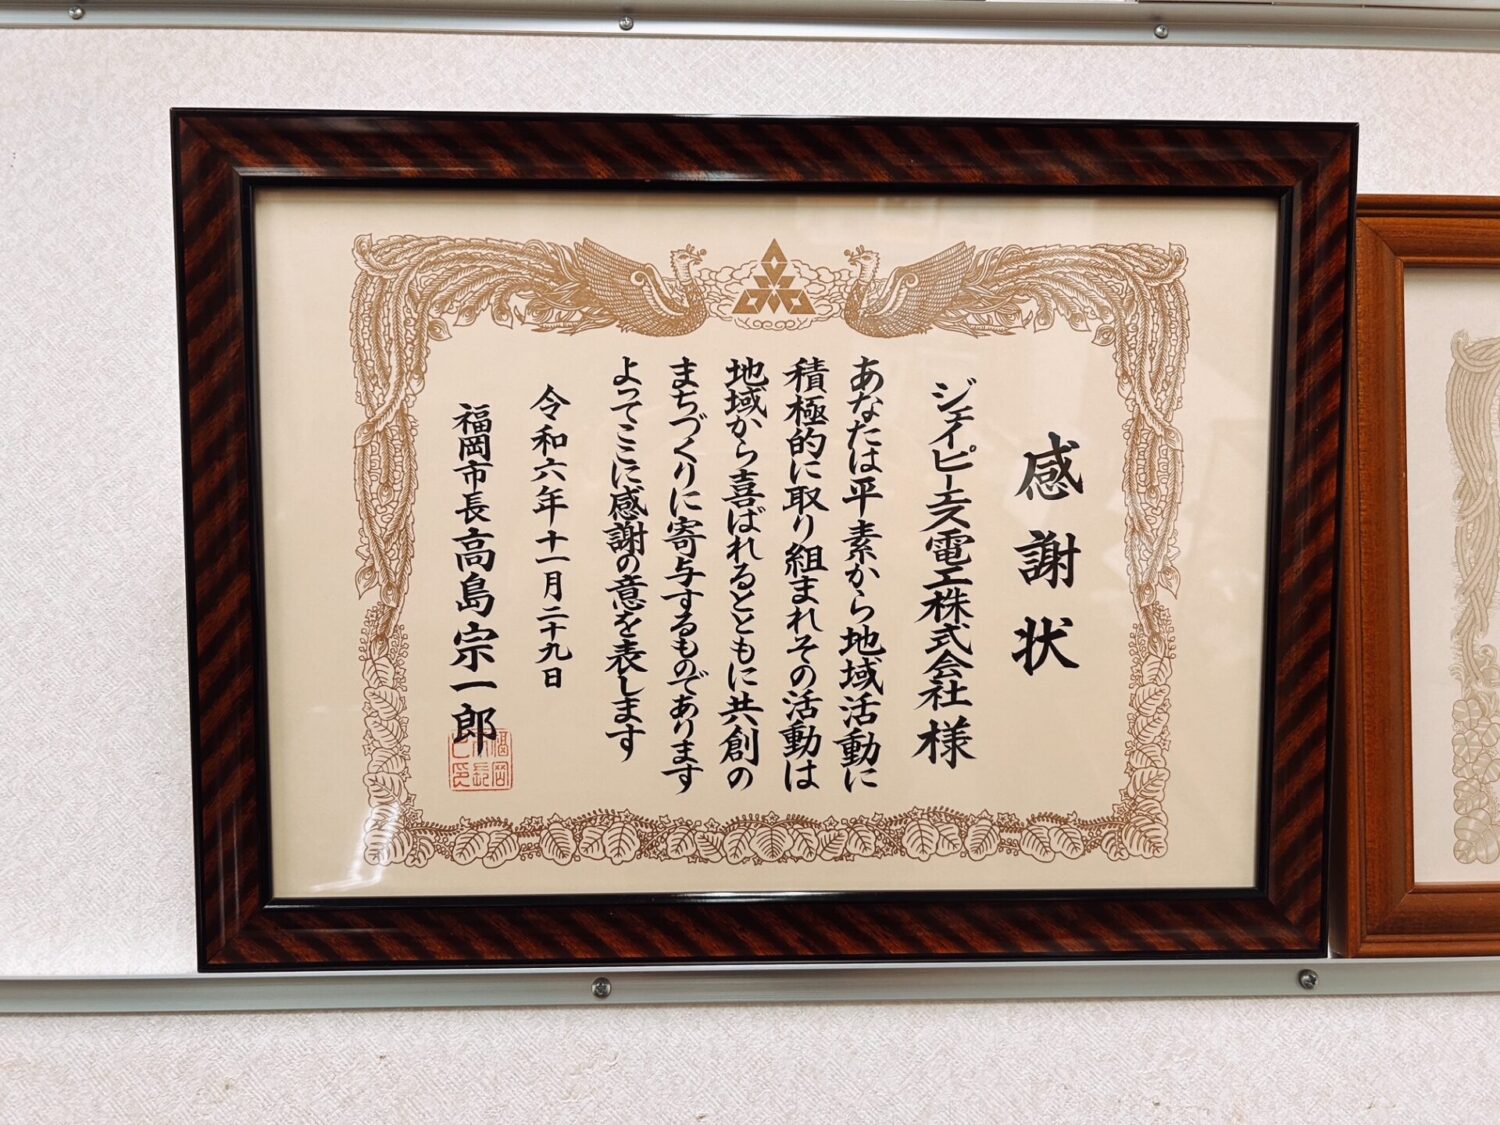 感謝状
ジェイピーエス電工株式会社様
あなたは平素から地域活動に
積極的に取り組まれその活動は
地域から喜ばれるとともに共創の
まちづくりに寄与するものであります
よってここに感謝の意を表します
令和六年十一月二十九日
福岡市長高島宗一郎